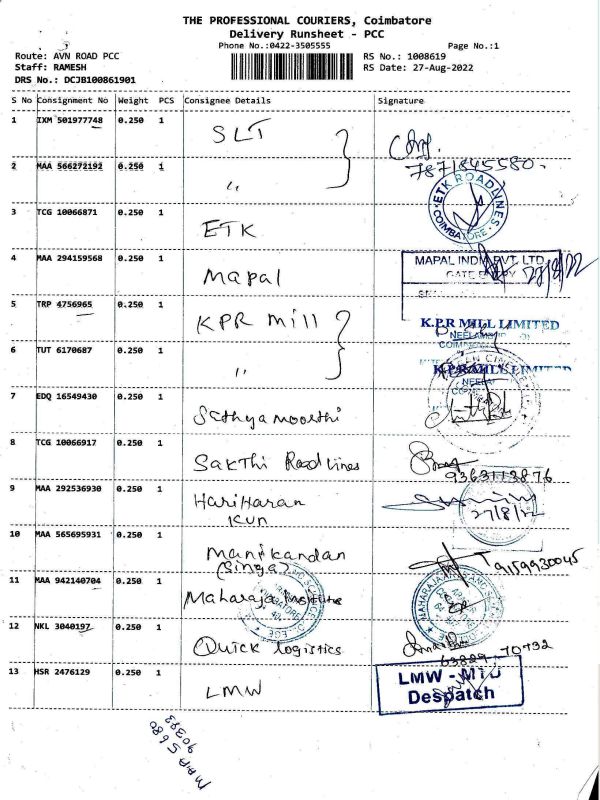 THE PROFESSIONAL COURIERS, Coimbatore
Delivery Runsheet - PCC
Phone No.:0422-3505555
Page No.:1
Route: AVN ROAD PCC
RS No.: 1008619
Staff: RAMESH
RS Date: 27-Aug-2022
DRS No.: DCJB100861901
S No Consignment No Weight PCS Consignee Details Signature
1 IXM 501977748 0.250 1 SLT
7871845580.
2 MAA 566272192 0.250 1 "
ETK ROADLINES
COIMBATORE
3 TCG 10066871 0.250 1 ETK
4 MAA 294159568 0.250 1 Mapal
MAPAL INDIA PVT. LTD.
GATE ENTRY 27/8/22
5 TRP 4756965 0.250 1 KPR Mill
K.P.R MILL LIMITED
6 TUT 6170687 0.250 1 "
K.P.R MILL LIMITED
7 EDQ 16549430 0.250 1 Sathyamoorthi
8 TCG 10066917 0.250 1 Sakthi Roadlines
9363113876
9 MAA 292536930 0.250 1 Hariharan
Kun
27/8/22
10 MAA 565695931 0.250 1 Manikandan
(Singa)
9159930045
11 MAA 942140704 0.250 1 Maharaja Institute
12 NKL 3040197 0.250 1 Quick logistics
63829-70432
13 HSR 2476129 0.250 1 LMW
LMW - MTD
Despatch
MAA 5680
90393